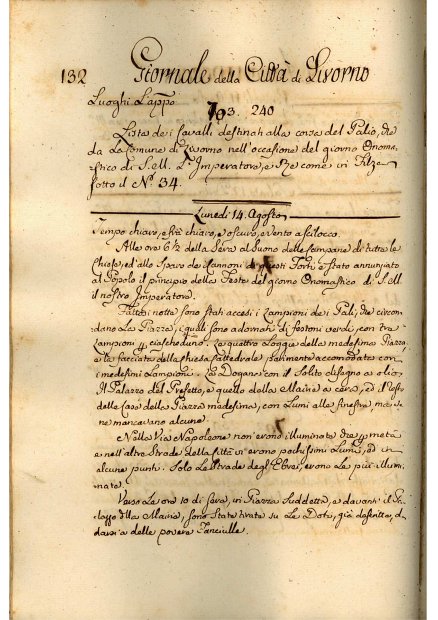 132 Giornale della Città di Livorno
Luoghi Lappo
793. 240
Lista dei Cavalli destinati alla corsa del Palio, che
da La Comune di Livorno nell'occasione del giorno Onoma,
stico di S.M. L'Imperatore, e Rè come in Filza
sotto il Nº. 34.
Lunedi 14. Agosto
Tempo chiaro, e frà chiaro, e oscuro, e vento a scilocco.
Alle ore 6½ della Sera al Suono delle campane di tutte le
Chiese, ed allo Sparo dei Cannoni di questi Forti è stato annunziato
al Popolo il principio della Festa del giorno Onomastico di S.M.
il nostro Imperatore.
Fattosi notte sono stati accesi i Lampioni dei Pali, che circon,
dano La Piazza, i quali sono adornati di festoni verdi con tre
Lampioni 4 ciascheduno. Le quattro Loggie della medesima Piazza,
e la facciata della chiesa Cattedrale similmente accomodate con
i medesimi Lampioni. La Dogana con il Solito disegno a olio,
Il Palazzo del Prefetto, e quello della Maire a cera, ed il Resto
delle Case della Piazza medesima, con Lumi alle finestre, ma, se
ne mancavano alcune.
Nella Via Napoleone non erono illuminate che 4 metà
e nell'altre Strade della Città vi erono pochissimi Lumi, ed in
alcune punti. Solo Le Strade degl'Ebrei, erono Le più illumi,
nate.
Verso Le ore 10 di sera, in Piazza Suddetta, e davanti il Pa,
lazzo della Maire, sono State tirate su Le Doti, già descritte, d,
darsi a delle povere Fanciulle.